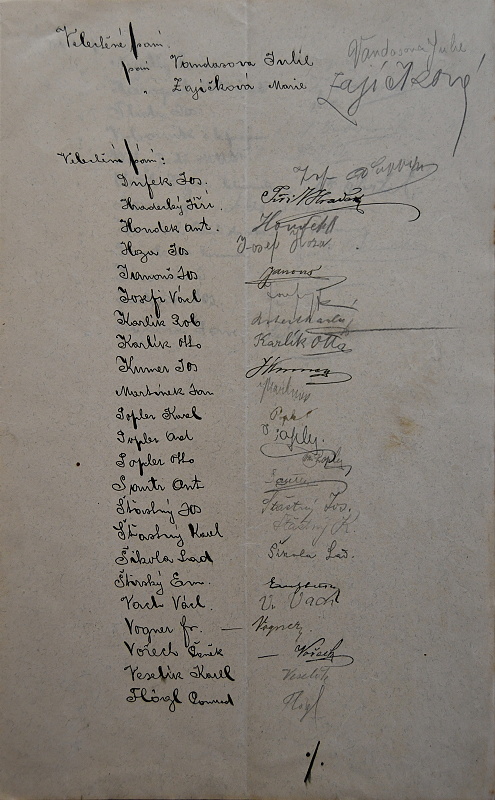 Velectěné paní
paní Vandasova Julie Vandasova Julie
" Zajíčková Marie Zajíčková
Velectění páni:
Dufek Jos.
Hradecký Jiří Jiří Hradecký
Hondek Ant. Hondek
Hoza Jos Josef Hoza.
Ivanouš Jos
Josefi Václ
Karlík Rob
Karlík Otto Karlík Otto
Kumer Jos
Martínek Jan Martínek
Popler Karel
Popler Ad
Popler Otto
Šantr Ant
Šťastný Jos Šťastný Jos.
Šťastný Karel Šťastný K.
Šikola Lad Šikola Lad.
Štěrský Em.
Vach Václ. V. Vach
Vogner fr. — Vogner.
Vořech Čeněk — Vořech
Veselík Karel Veselík
Flögl Conrad Flögl
./.